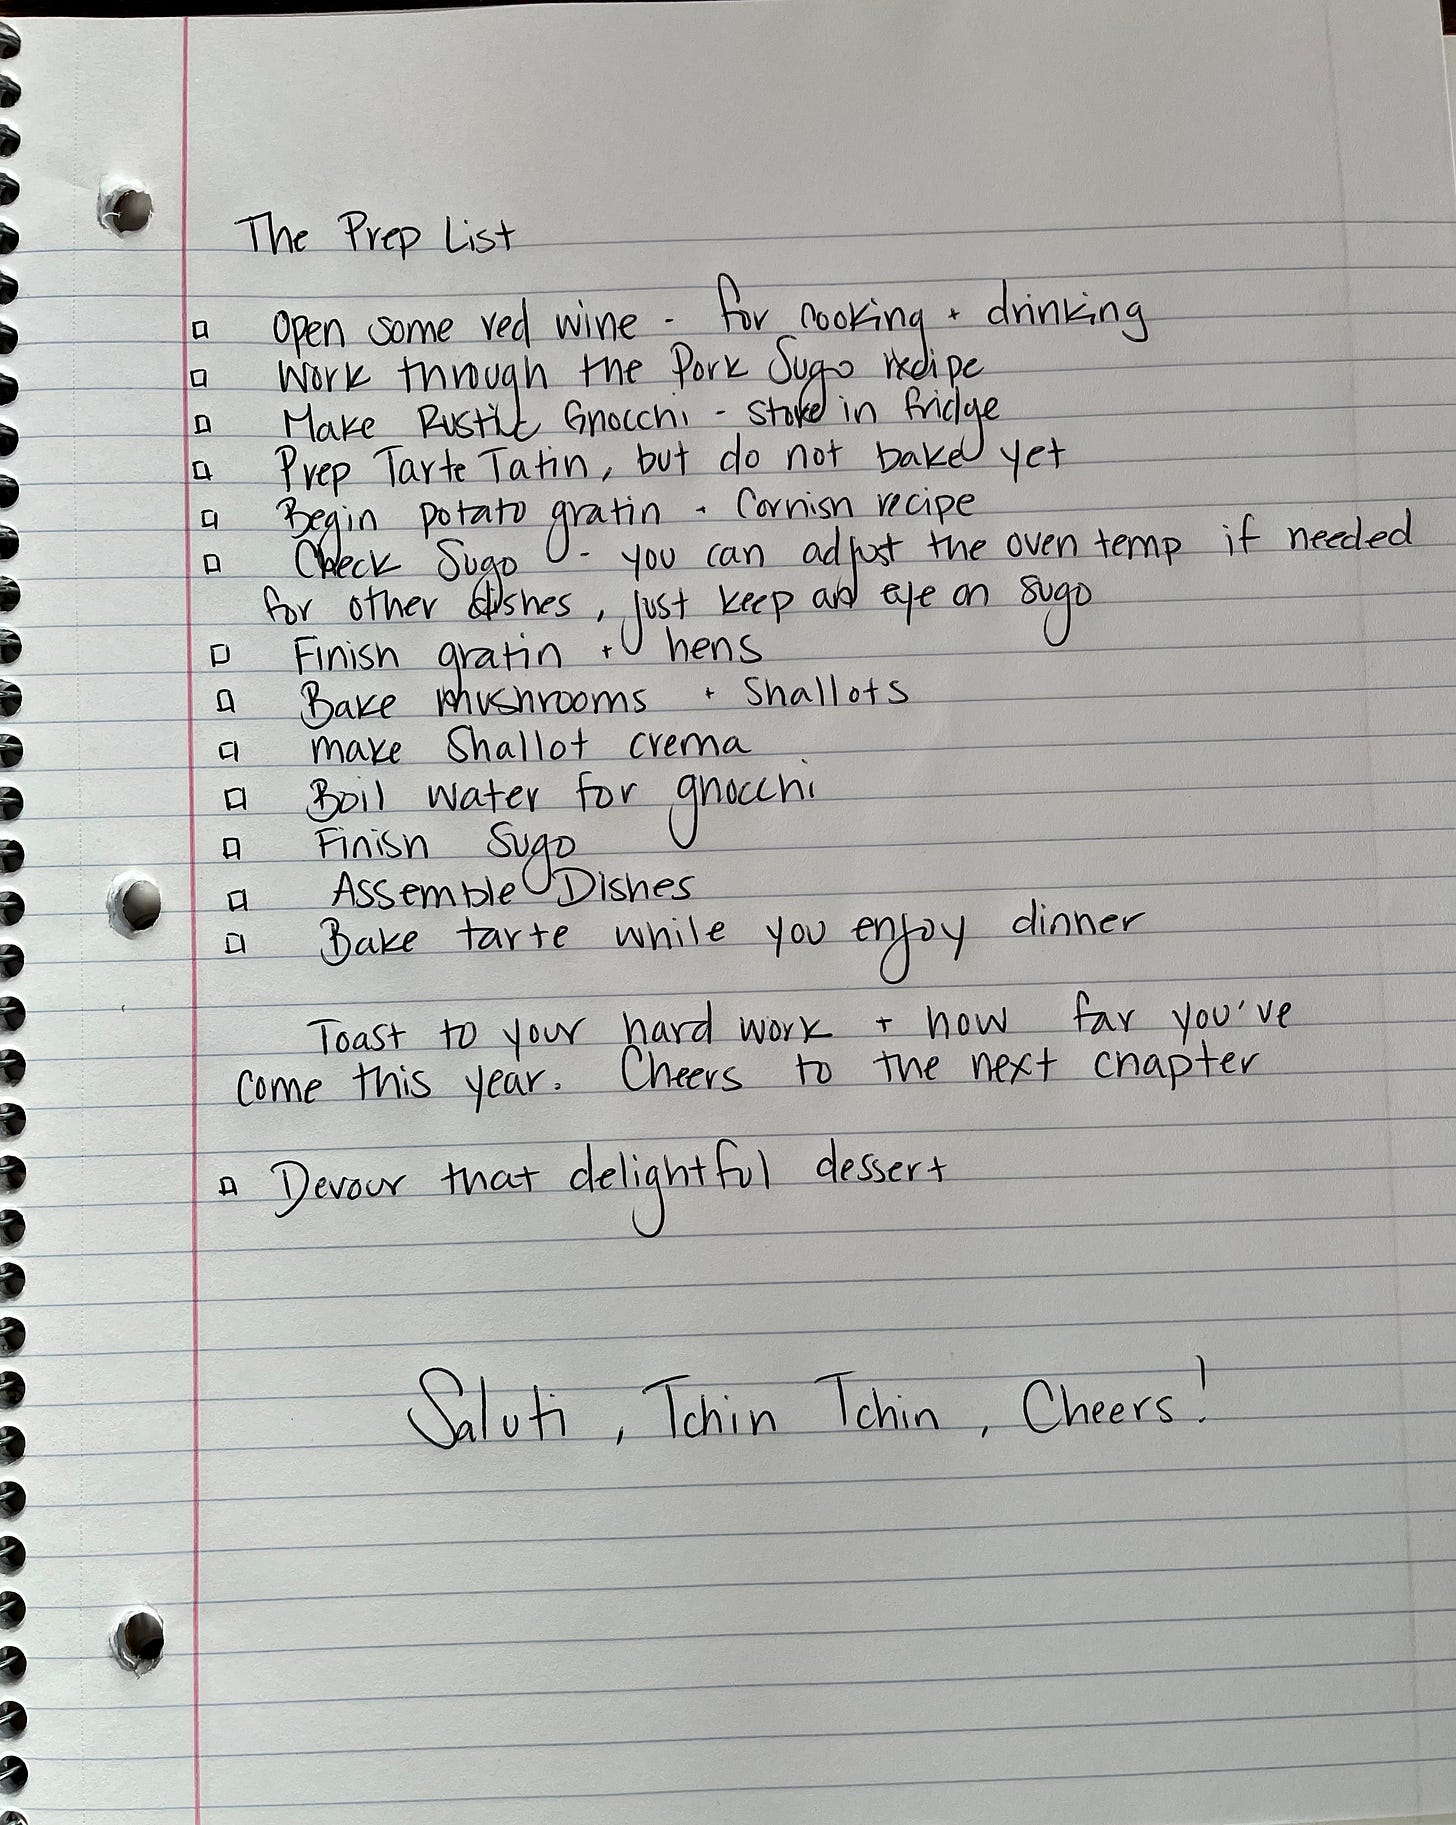 The Prep List
□ Open some red wine - for cooking + drinking
□ Work through the Pork Sugo recipe
□ Make Rustic Gnocchi - store in fridge
□ Prep Tarte Tatin, but do not bake yet
□ Begin potato gratin + Cornish recipe
□ Check Sugo - you can adjust the oven temp if needed
for other dishes, just keep an eye on sugo
□ Finish gratin + hens
□ Bake mushrooms + Shallots
□ make Shallot crema
□ Boil water for gnocchi
□ Finish Sugo
□ Assemble Dishes
□ Bake tarte while you enjoy dinner
Toast to your hard work + how far you've
come this year. Cheers to the next chapter
□ Devour that delightful dessert
Saluti, Tchin Tchin, Cheers!